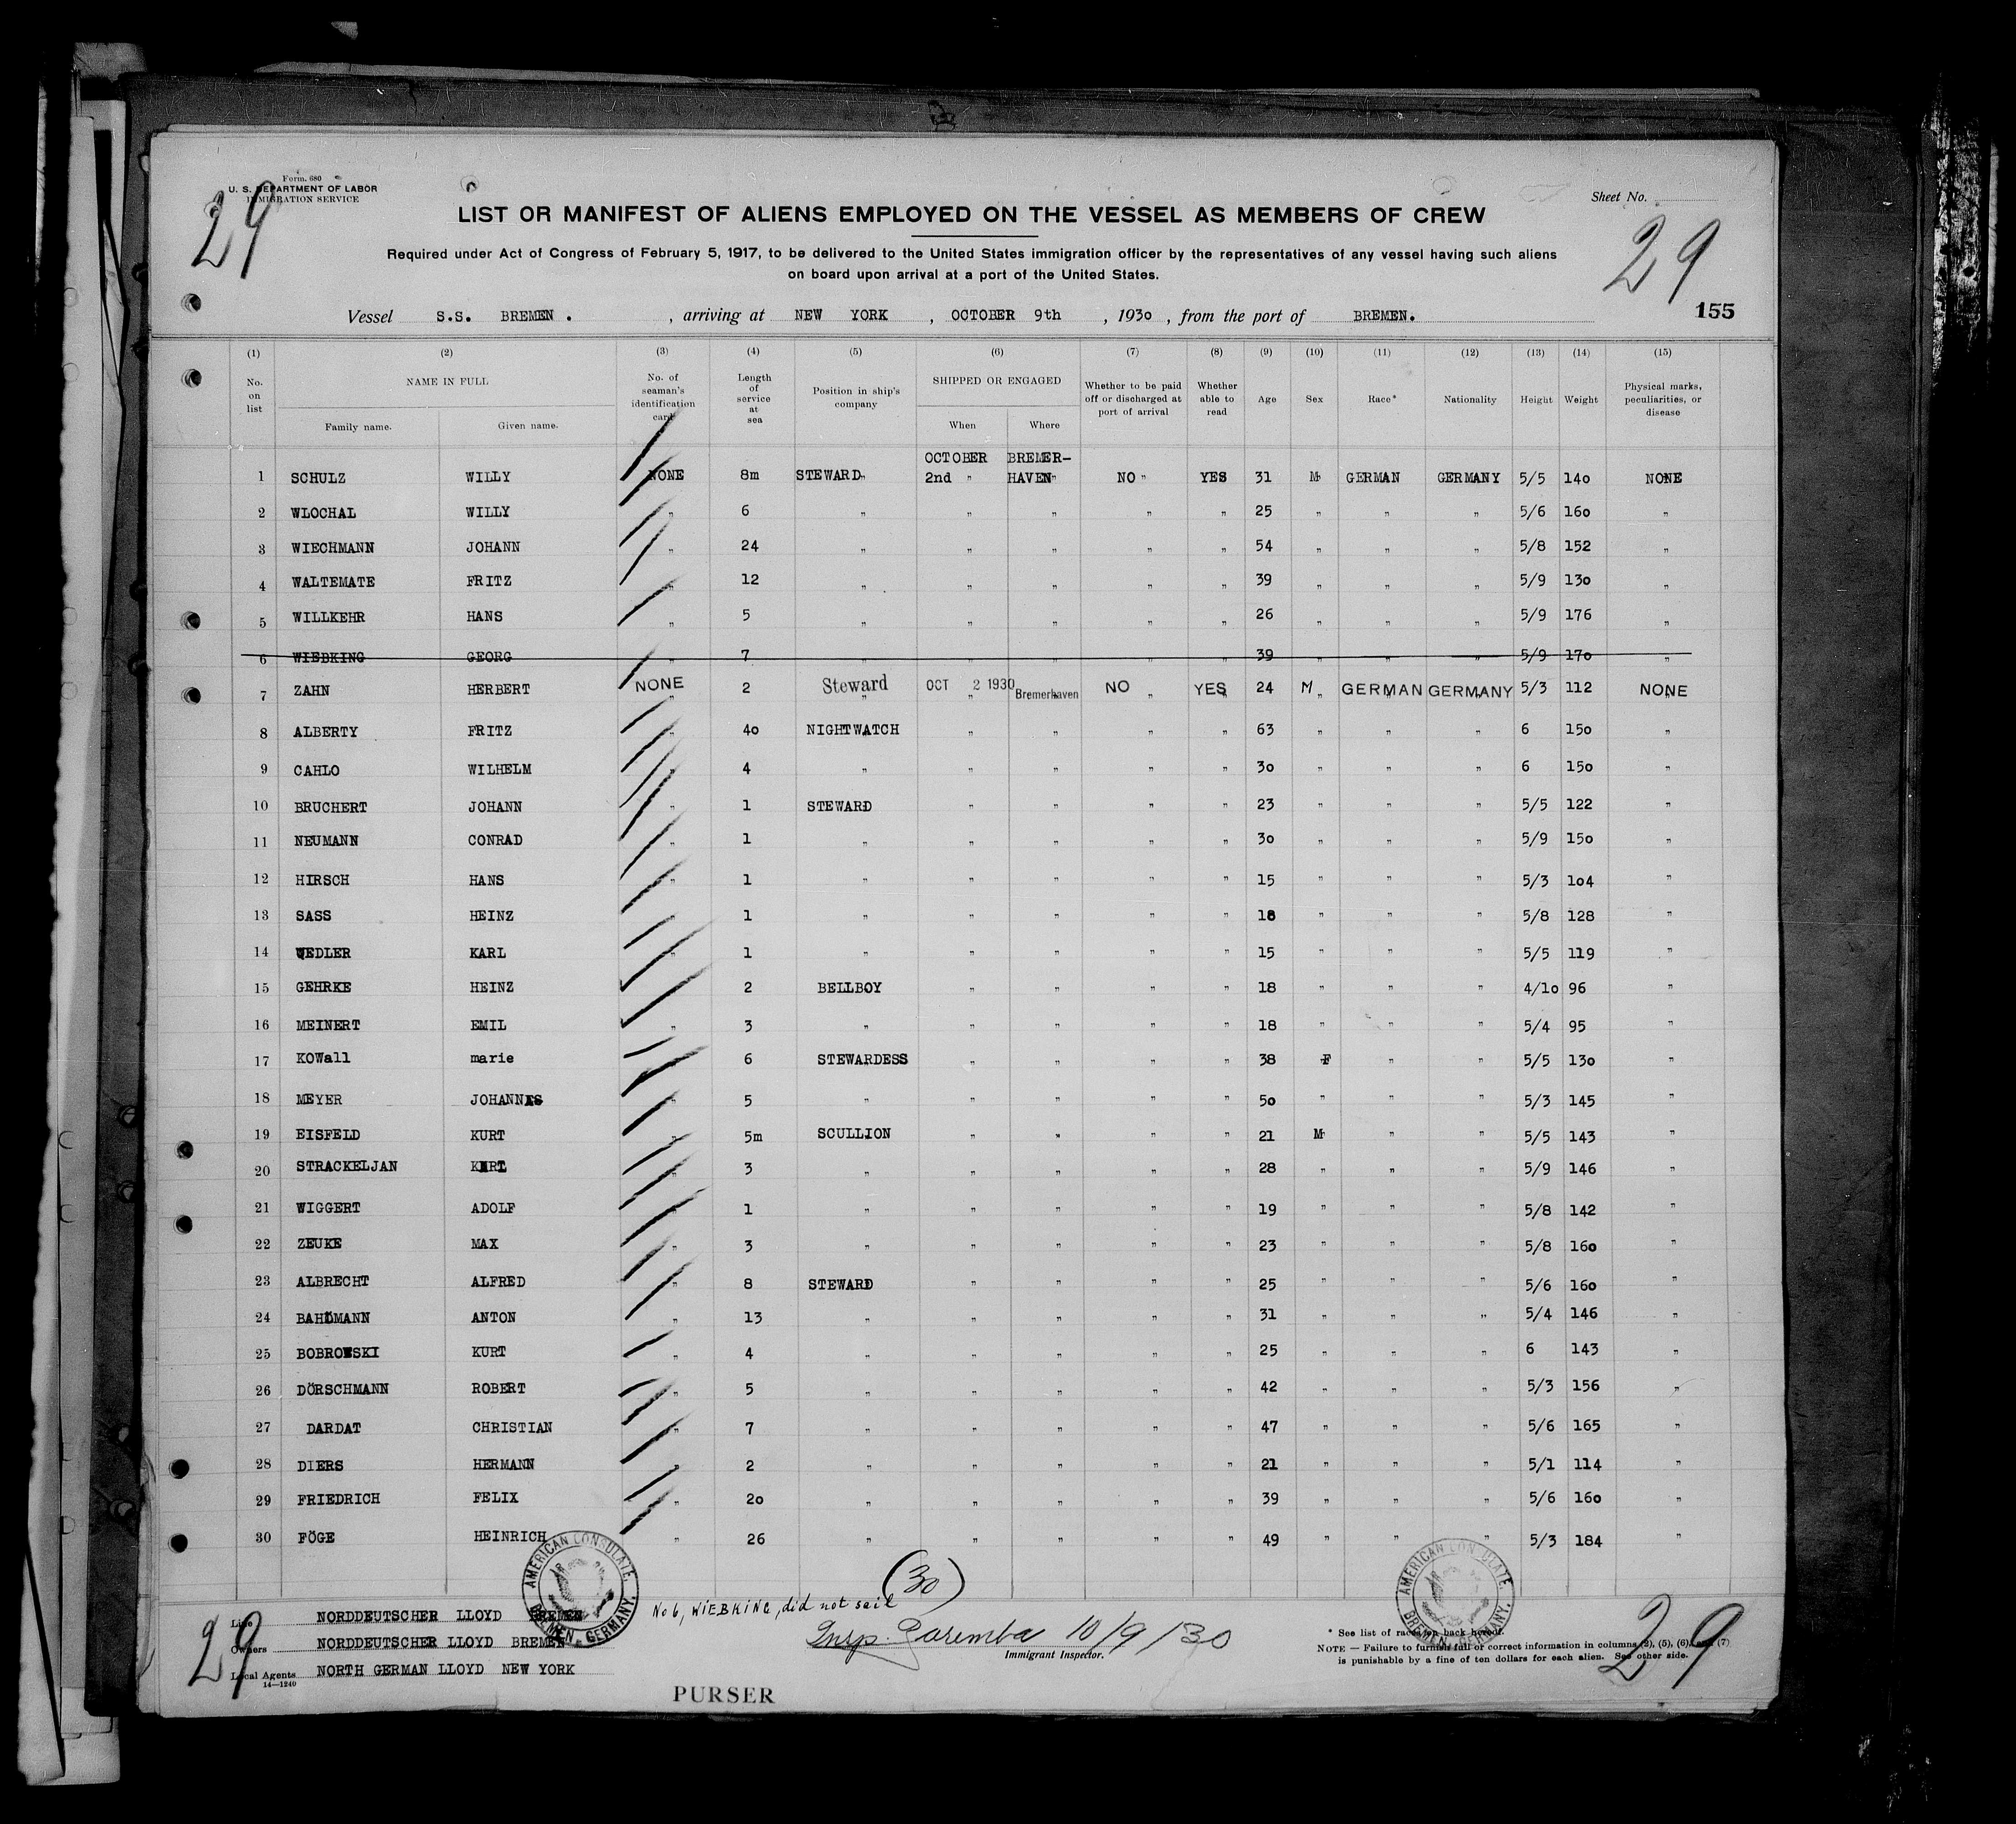 Form. 680
U. S. DEPARTMENT OF LABOR
IMMIGRATION SERVICE
29
Sheet No.
LIST OR MANIFEST OF ALIENS EMPLOYED ON THE VESSEL AS MEMBERS OF CREW
29
Required under Act of Congress of February 5, 1917, to be delivered to the United States immigration officer by the representatives of any vessel having such aliens
on board upon arrival at a port of the United States.
155
Vessel S.S. BREMEN . , arriving at NEW YORK , OCTOBER 9th , 1930 , from the port of BREMEN.
(1) (2) (3) (4) (5) (6) (7) (8) (9) (10) (11) (12) (13) (14) (15)
No. on list NAME IN FULL Family name. Given name. No. of seaman's identification card Length of service at sea Position in ship's company SHIPPED OR ENGAGED When Where Whether to be paid off or discharged at port of arrival Whether able to read Age Sex Race* Nationality Height Weight Physical marks, peculiarities, or disease
OCTOBER BREMER-
1 SCHULZ WILLY NONE 8m STEWARD " 2nd " HAVEN " NO " YES 31 M GERMAN GERMANY 5/5 140 NONE
2 WLOCHAL WILLY " 6 " " " " " 25 " " " 5/6 160 "
3 WIECHMANN JOHANN " 24 " " " " " 54 " " " 5/8 152 "
4 WALTEMATE FRITZ " 12 " " " " " 39 " " " 5/9 130 "
5 WILLKEHR HANS " 5 " " " " " 26 " " " 5/9 176 "
6 WIEBKING GEORG " 7 " " " " " 39 " " " 5/9 170 "
7 ZAHN HERBERT NONE " 2 Steward OCT 2 1930 " Bremerhaven NO " YES 24 M " GERMAN GERMANY 5/3 112 NONE
8 ALBERTY FRITZ " 40 NIGHTWATCH " " " " 63 " " " 6 150 "
9 CAHLO WILHELM " 4 " " " " " 30 " " " 6 150 "
10 BRUCHERT JOHANN " 1 STEWARD " " " " 23 " " " 5/5 122 "
11 NEUMANN CONRAD " 1 " " " " " 30 " " " 5/9 150 "
12 HIRSCH HANS " 1 " " " " " 15 " " " 5/3 104 "
13 SASS HEINZ " 1 " " " " " 18 " " " 5/8 128 "
14 WEDLER KARL " 1 " " " " " 15 " " " 5/5 119 "
15 GEHRKE HEINZ " 2 BELLBOY " " " " 18 " " " 4/10 96 "
16 MEINERT EMIL " 3 " " " " " 18 " " " 5/4 95 "
17 KOWall marie " 6 STEWARDESS " " " " 38 F " " 5/5 130 "
18 MEYER JOHANNAS " 5 " " " " " 50 " " " 5/3 145 "
19 EISFELD KURT " 5m SCULLION " " " " 21 M " " 5/5 143 "
20 STRACKELJAN KURT " 3 " " " " " 28 " " " 5/9 146 "
21 WIGGERT ADOLF " 1 " " " " " 19 " " " 5/8 142 "
22 ZEUKE MAX " 3 " " " " " 23 " " " 5/8 160 "
23 ALBRECHT ALFRED " 8 STEWARD " " " " 25 " " " 5/6 160 "
24 BAHLMANN ANTON " 13 " " " " " 31 " " " 5/4 146 "
25 BOBROWSKI KURT " 4 " " " " " 25 " " " 6 143 "
26 DÖRSCHMANN ROBERT " 5 " " " " " 42 " " " 5/3 156 "
27 DARDAT CHRISTIAN " 7 " " " " " 47 " " " 5/6 165 "
28 DIERS HERMANN " 2 " " " " " 21 " " " 5/1 114 "
29 FRIEDRICH FELIX " 20 " " " " " 39 " " " 5/6 160 "
30 FÖGE HEINRICH " 26 " " " " " 49 " " " 5/3 184 "
AMERICAN CONSULATE, BREMEN, GERMANY.
AMERICAN CONSULATE, BREMEN, GERMANY.
(30)
No 6, WIEBKING, did not sail
Line NORDDEUTSCHER LLOYD BREMEN
Owners NORDDEUTSCHER LLOYD BREMEN
Local Agents NORTH GERMAN LLOYD NEW YORK
14—1240
29
Insp. Zaremba 10/9/30
Immigrant Inspector.
* See list of races on back hereof.
NOTE — Failure to furnish full or correct information in columns (2), (5), (6), and (7)
is punishable by a fine of ten dollars for each alien. See other side.
29
PURSER